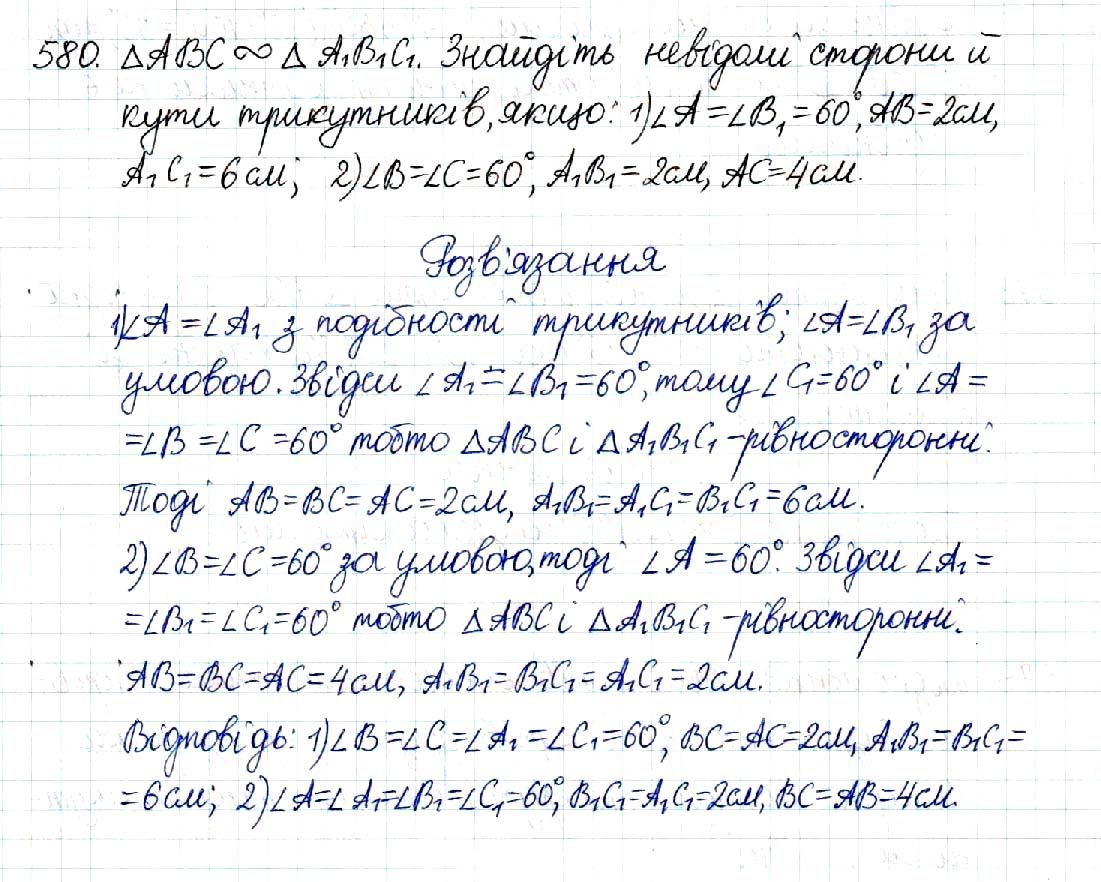 580. ΔABC∞Δ A₁B₁C₁. Знайдіть невідомі сторони й
кути трикутників, якщо: 1)∠A=∠B₁=60°, AB=2см,
A₁C₁=6см; 2)∠B=∠C=60°, A₁B₁=2см, AC=4см.
Розв'язання
1)∠A=∠A₁ з подібності трикутників; ∠A=∠B₁ за
умовою. Звідси ∠A₁=∠B₁=60°, тому ∠C₁=60° і ∠A=
=∠B=∠C=60° тобто ΔABC і ΔA₁B₁C₁-рівносторонні.
Тоді AB=BC=AC=2см, A₁B₁=A₁C₁=B₁C₁=6см.
2)∠B=∠C=60° за умовою, тоді ∠A=60°. Звідси ∠A₁=
=∠B₁=∠C₁=60° тобто ΔABC і ΔA₁B₁C₁-рівносторонні.
AB=BC=AC=4см, A₁B₁=B₁C₁=A₁C₁=2см.
Відповідь: 1)∠B=∠C=∠A₁=∠C₁=60°, BC=AC=2см, A₁B₁=B₁C₁=
=6см; 2)∠A=∠A₁=∠B₁=∠C₁=60°, B₁C₁=A₁C₁=2см, BC=AB=4см.